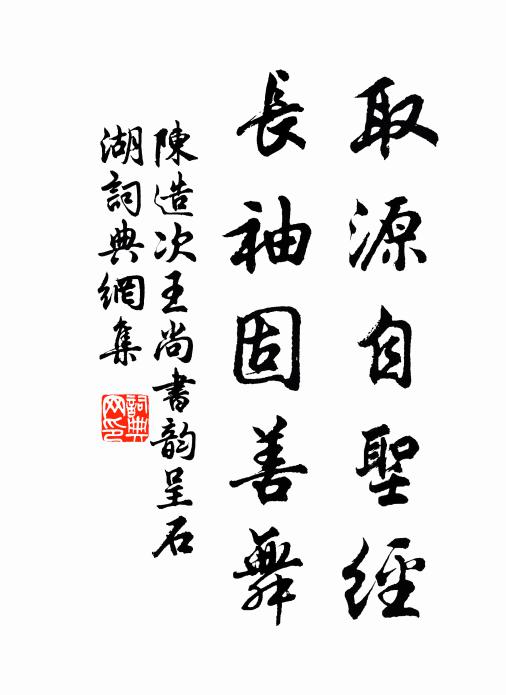 取源自聖經
長袖固善舞
陳造次王尚書韵呈石
湖詞典網集
詞典网印